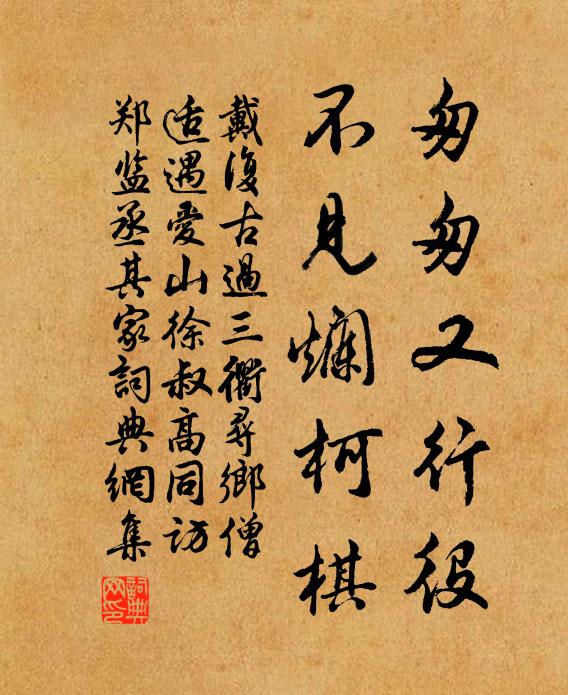 匆匆又行役
不见爛柯棋
戴復古過三衢尋鄉僧
适遇愛山徐叔高同访
郑监丞其家詞典網集
詞典
网印